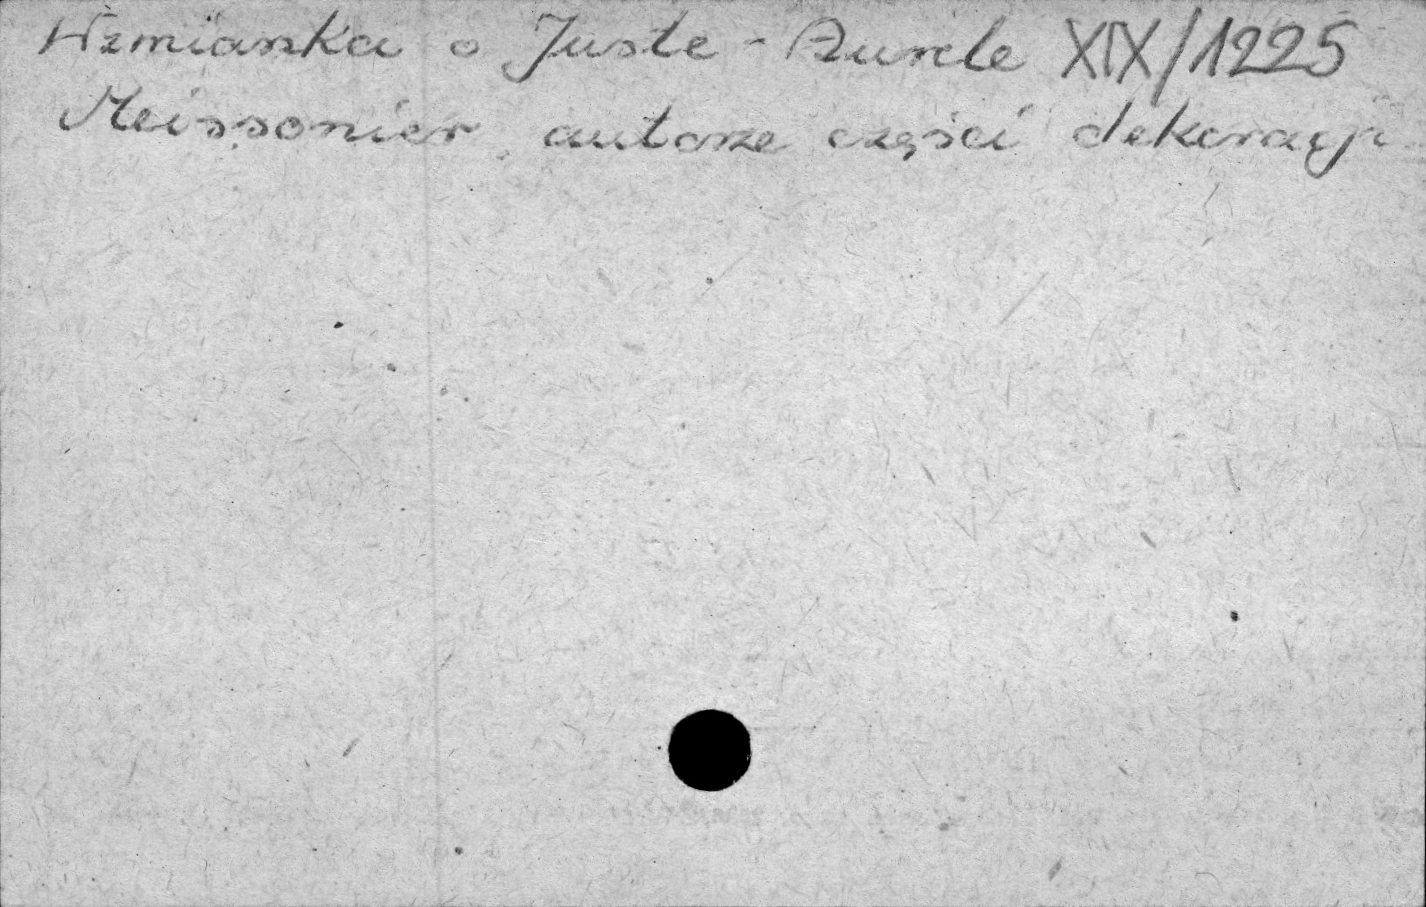 Wzmianka o Juste - Aurele XIX/1225
Meissonier, autorze części dekoracji